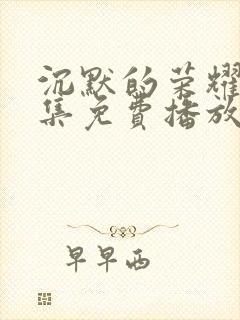 沉默的荣耀
集免费播放
早早西